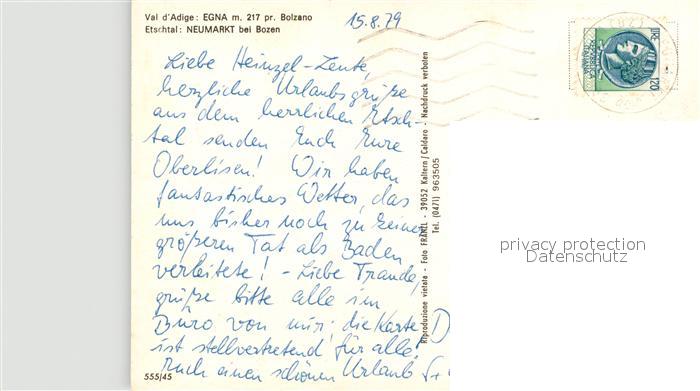 Val d'Adige: EGNA m. 217 pr. Bolzano
Etschtal: NEUMARKT bei Bozen
15.8.79
Liebe Heinzel-Leute,
herzliche Urlaubsgrüße
aus dem herrlichen Etsch-
tal senden Euch Eure
Oberlisen! Wir haben
fantastisches Wetter, das
uns bisher noch zu keiner
größeren Tat als Baden
verleitete! - Liebe Traude,
grüße bitte alle im
Büro von mir; die Karte
ist stellvertretend für alle!
Euch einen schönen Urlaub
555/45
Riproduzione vietata - Foto FRANZL - 39052 Kaltern/Caldaro - Nachdruck verboten
Tel. (0471) 963505
LIRE 120
REPUBBLICA
ITALIANA
privacy protection
Datenschutz